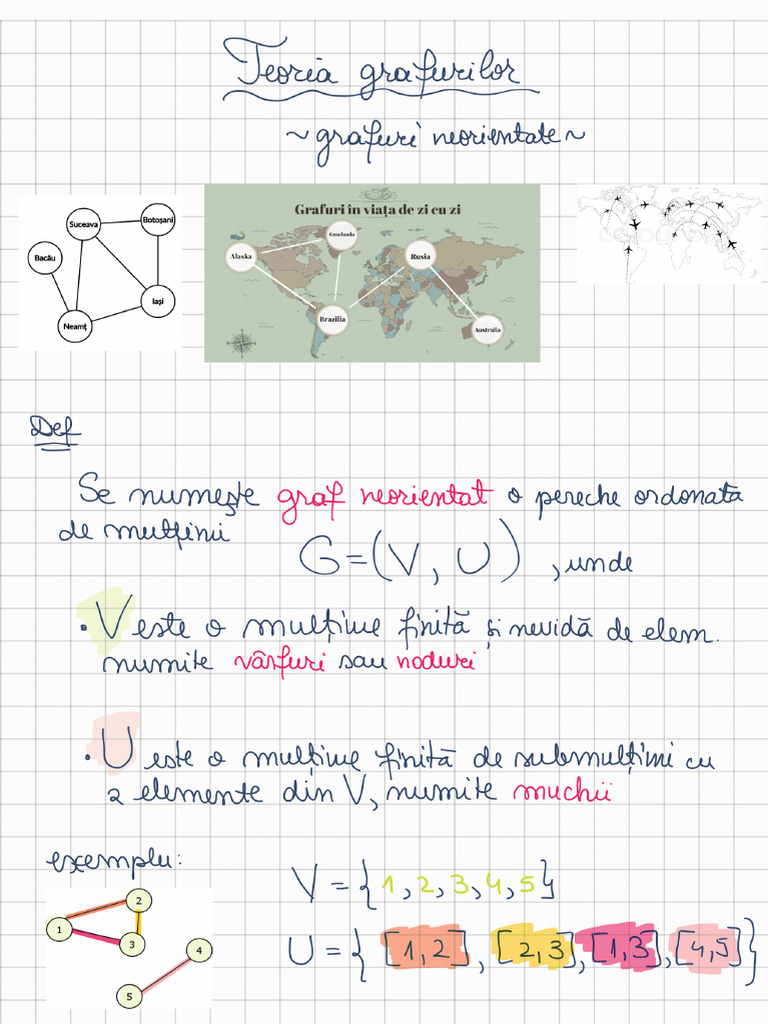 Teoria grafurilor
~ grafuri neorientate ~
Suceava
Botoșani
Bacău
Iași
Neamț
Grafuri în viața de zi cu zi
Alaska
Groenlanda
Rusia
Brazilia
Australia
Def
Se numește graf neorientat o pereche ordonată
de mulțimi G=(V, U), unde
• V este o mulțime finită și nevidă de elem.
numite vârfuri sau noduri
• U este o mulțime finită de submulțimi cu
2 elemente din V, numite muchii
exemplu:
V = {1, 2, 3, 4, 5}
U = {[1,2], [2,3], [1,3], [4,5]}
1
2
3
4
5